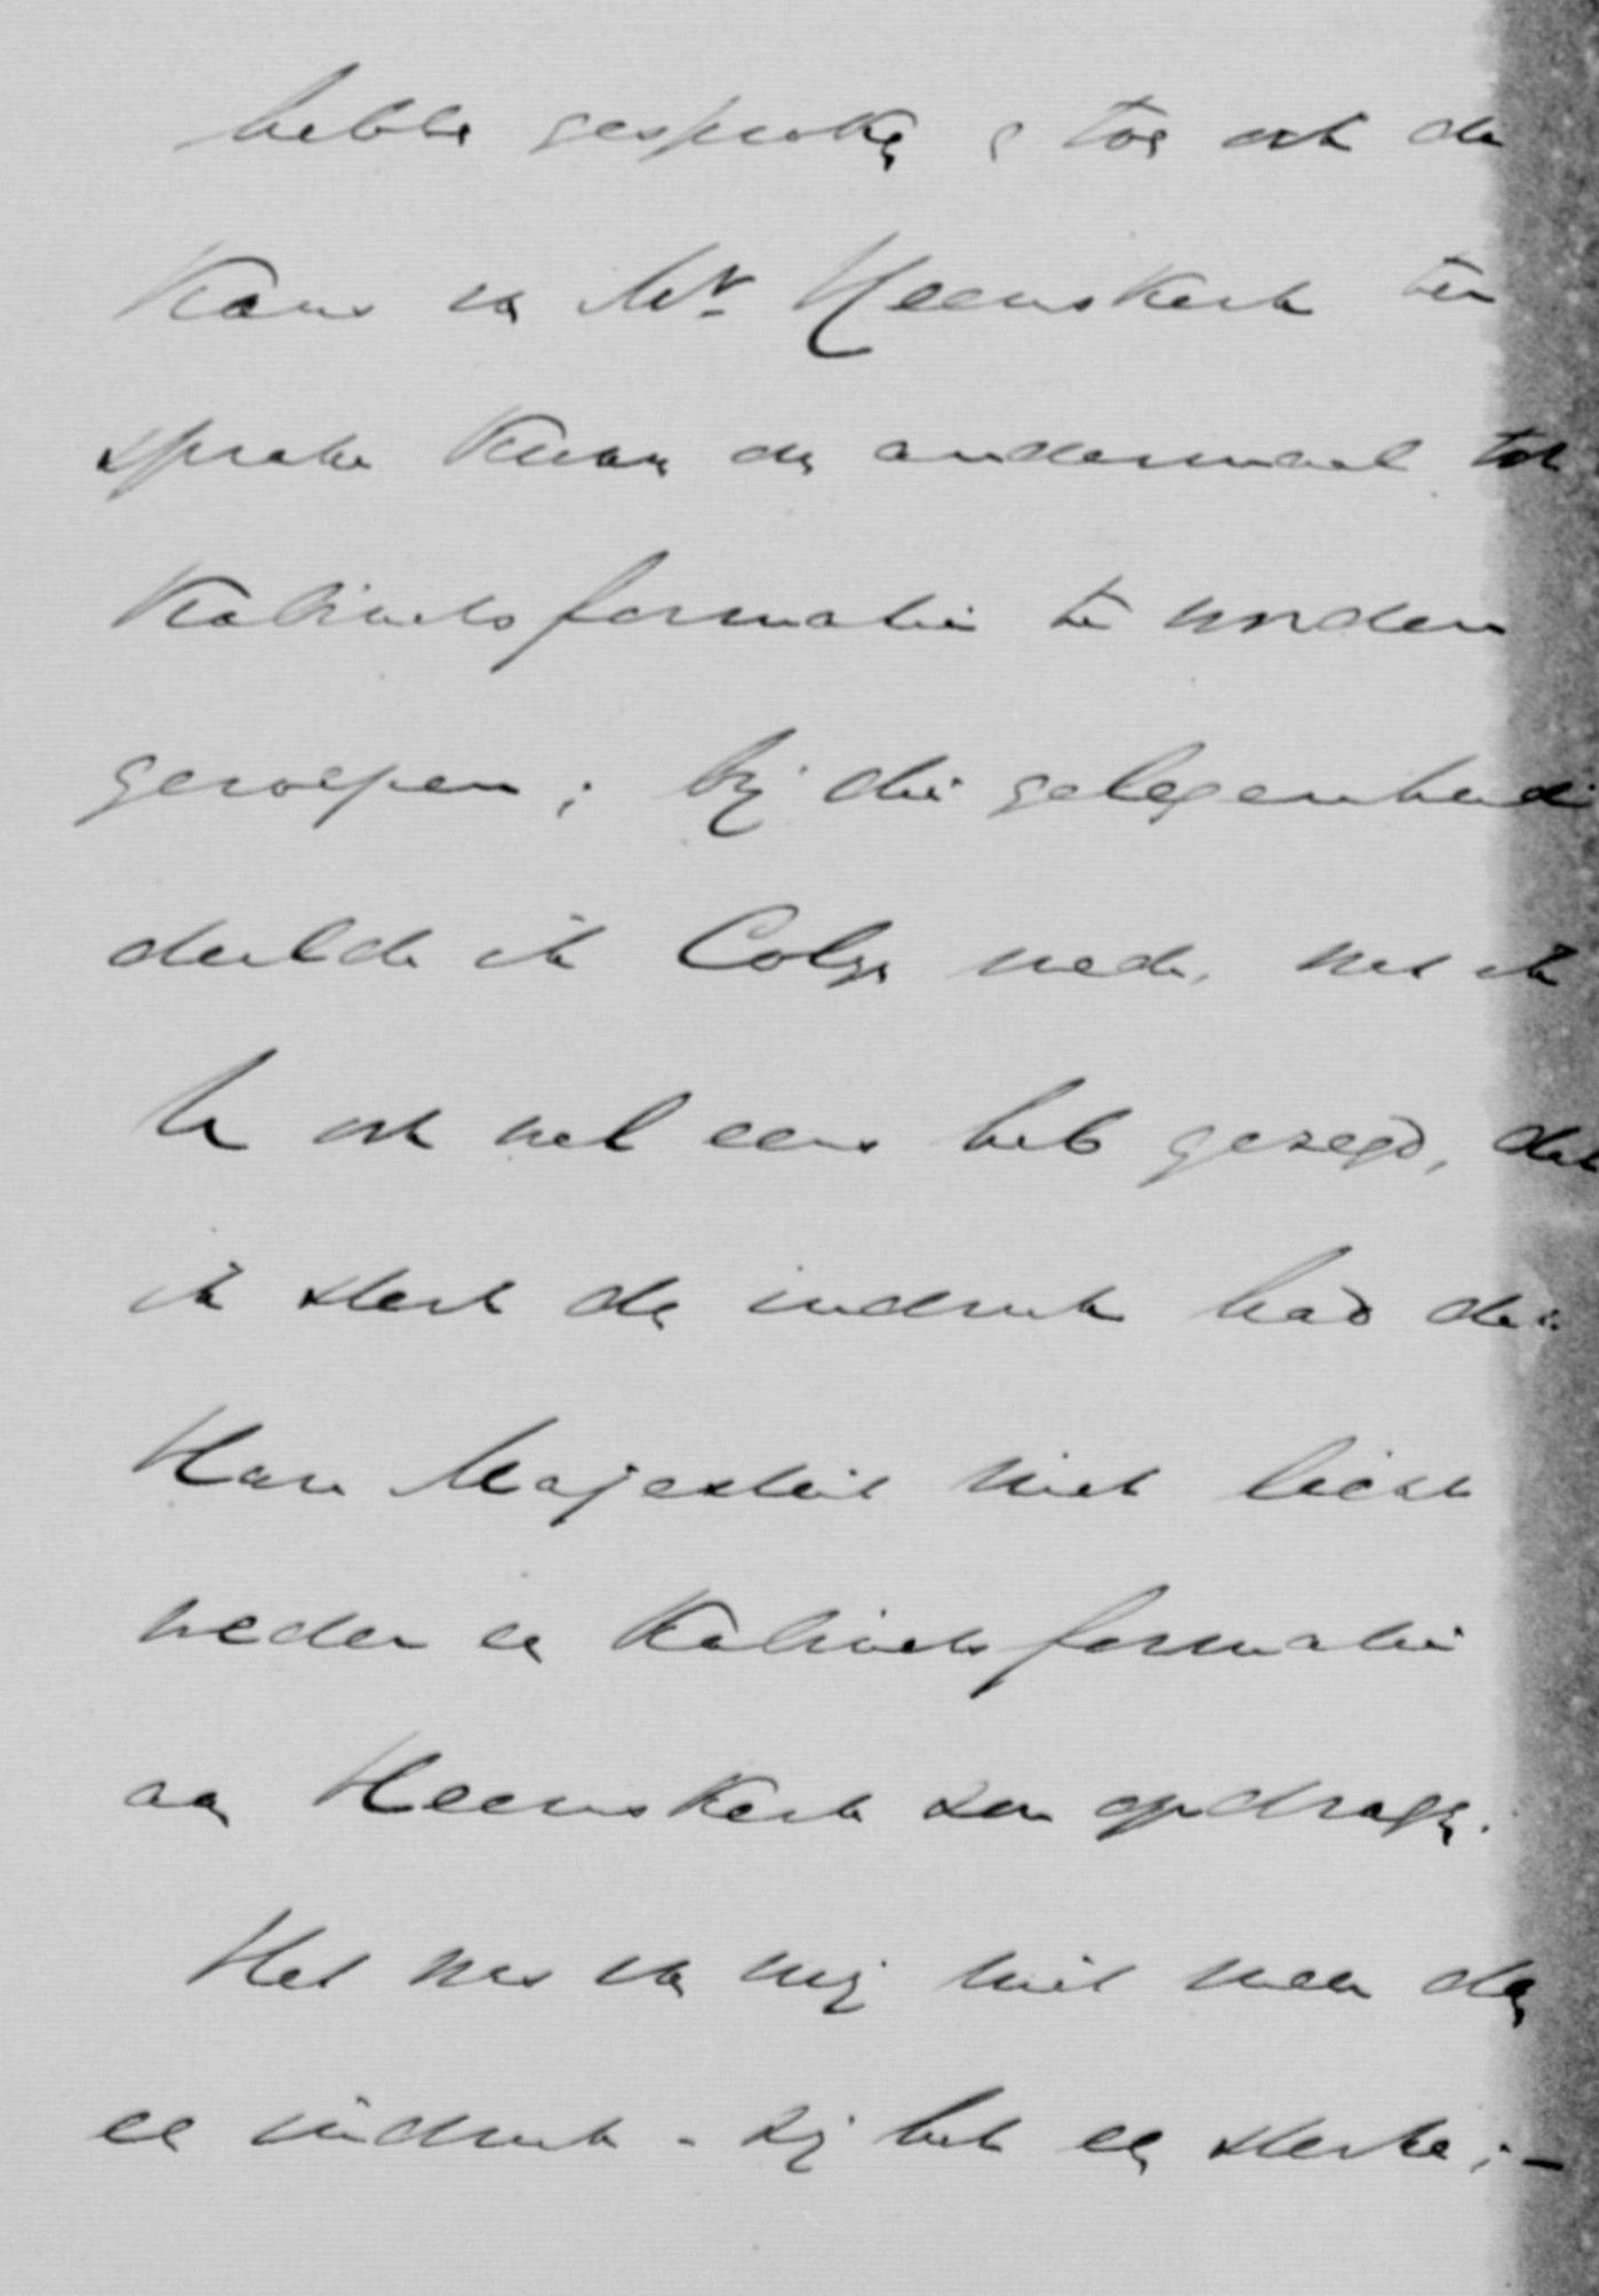 hebben gesproken en toen ook de
kans van Mr. Heemskerk ter
sprake kwam om andermaal tot
Kabinetsformatie te worden
geroepen; bij die gelegenheid
deelde ik Colijn mede, wat ik
U ook wel eens heb gezegd, dat
ik sterk den indruk had dat
Hare Majesteit niet licht
weder een Kabinetsformatie
aan Heemskerk zou opdragen.
Het was van mij niet meer dan
een indruk - zij het een sterke; -